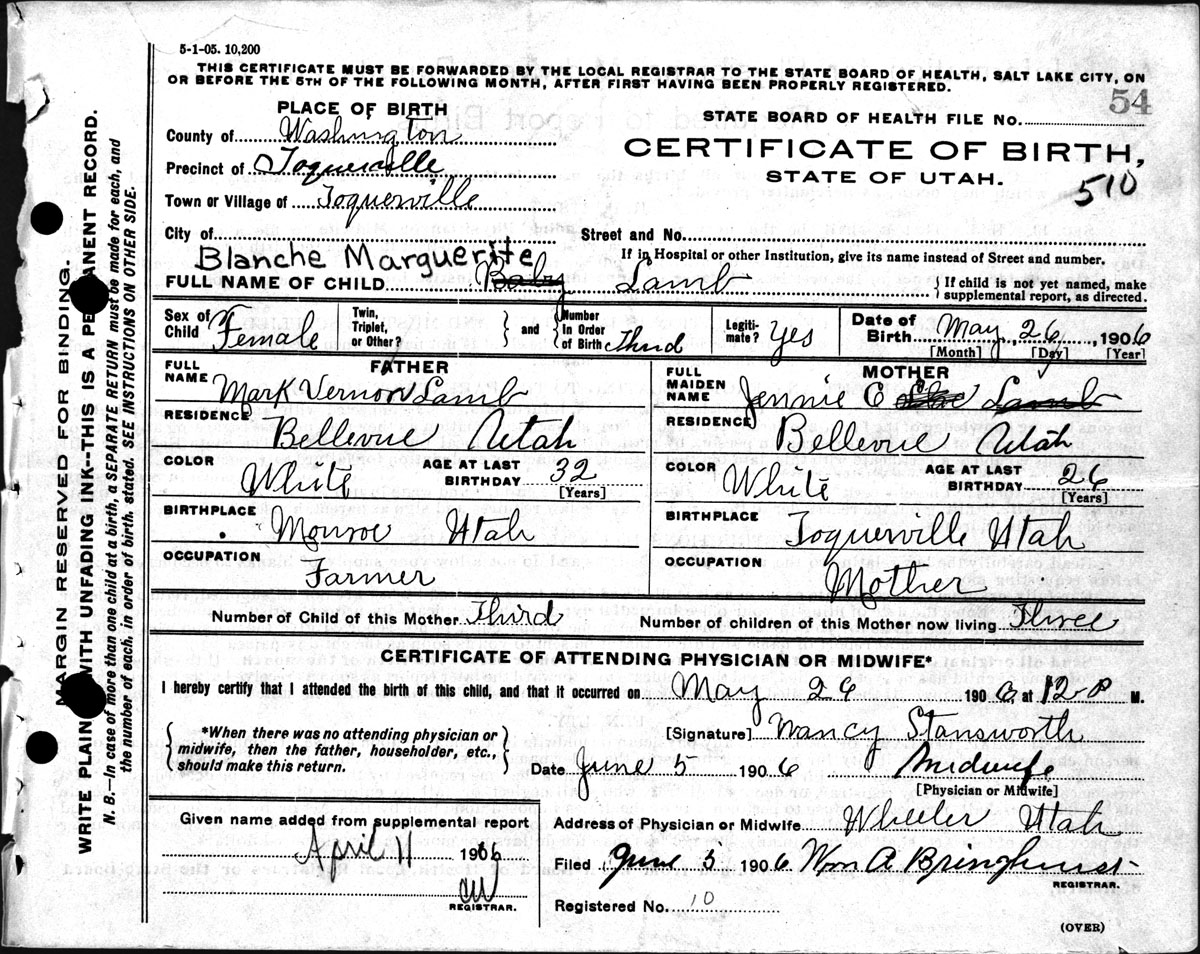 5-1-05. 10,200
THIS CERTIFICATE MUST BE FORWARDED BY THE LOCAL REGISTRAR TO THE STATE BOARD OF HEALTH, SALT LAKE CITY, ON
OR BEFORE THE 5TH OF THE FOLLOWING MONTH, AFTER FIRST HAVING BEEN PROPERLY REGISTERED.
54
PLACE OF BIRTH
STATE BOARD OF HEALTH FILE No.
County of Washington
CERTIFICATE OF BIRTH,
Precinct of Toquerville
STATE OF UTAH.
510
Town or Village of Toquerville
City of
Street and No.
Blanche Marguerite
If in Hospital or other Institution, give its name instead of Street and number.
FULL NAME OF CHILD Baby Lamb
{ If child is not yet named, make
supplemental report, as directed.
Sex of Child Female
Twin, Triplet, or Other?
} and {
Number In Order of Birth Third
Legiti-mate? Yes
Date of Birth May 26, 1906
[Month] [Day] [Year]
FATHER
FULL NAME Mark Vernon Lamb
RESIDENCE Bellevue Utah
COLOR White AGE AT LAST BIRTHDAY 32
[Years]
BIRTHPLACE Monroe Utah
OCCUPATION Farmer
MOTHER
FULL MAIDEN NAME Jennie C Lamb
RESIDENCE Bellevue Utah
COLOR White AGE AT LAST BIRTHDAY 26
[Years]
BIRTHPLACE Toquerville Utah
OCCUPATION Mother
Number of Child of this Mother Third
Number of children of this Mother now living Three
CERTIFICATE OF ATTENDING PHYSICIAN OR MIDWIFE*
I hereby certify that I attended the birth of this child, and that it occurred on May 26 1906, at 12 P M.
{ *When there was no attending physician or
midwife, then the father, householder, etc.,
should make this return. }
[Signature] Nancy Stansworth
Date June 5 1906 Midwife
[Physician or Midwife]
Given name added from supplemental report
April 11 1916
REGISTRAR.
Address of Physician or Midwife Wheeler Utah
Filed June 5 1906 Wm A Bringhurst
REGISTRAR.
Registered No. 10
(OVER)
MARGIN RESERVED FOR BINDING.
WRITE PLAINLY WITH UNFADING INK--THIS IS A PERMANENT RECORD.
N. B.--In case of more than one child at a birth, a SEPARATE RETURN must be made for each, and
the number of each, in order of birth, stated. SEE INSTRUCTIONS ON OTHER SIDE.